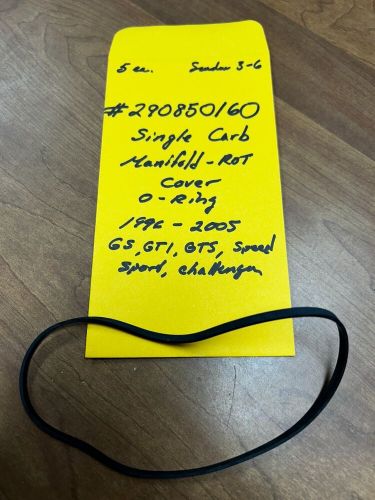 5 ea. Seadoo 3-6
#290850160
Single Carb
Manifold - ROT
Cover
O-Ring
1996 - 2005
GS, GTI, GTS, Speed
Sport, challenger